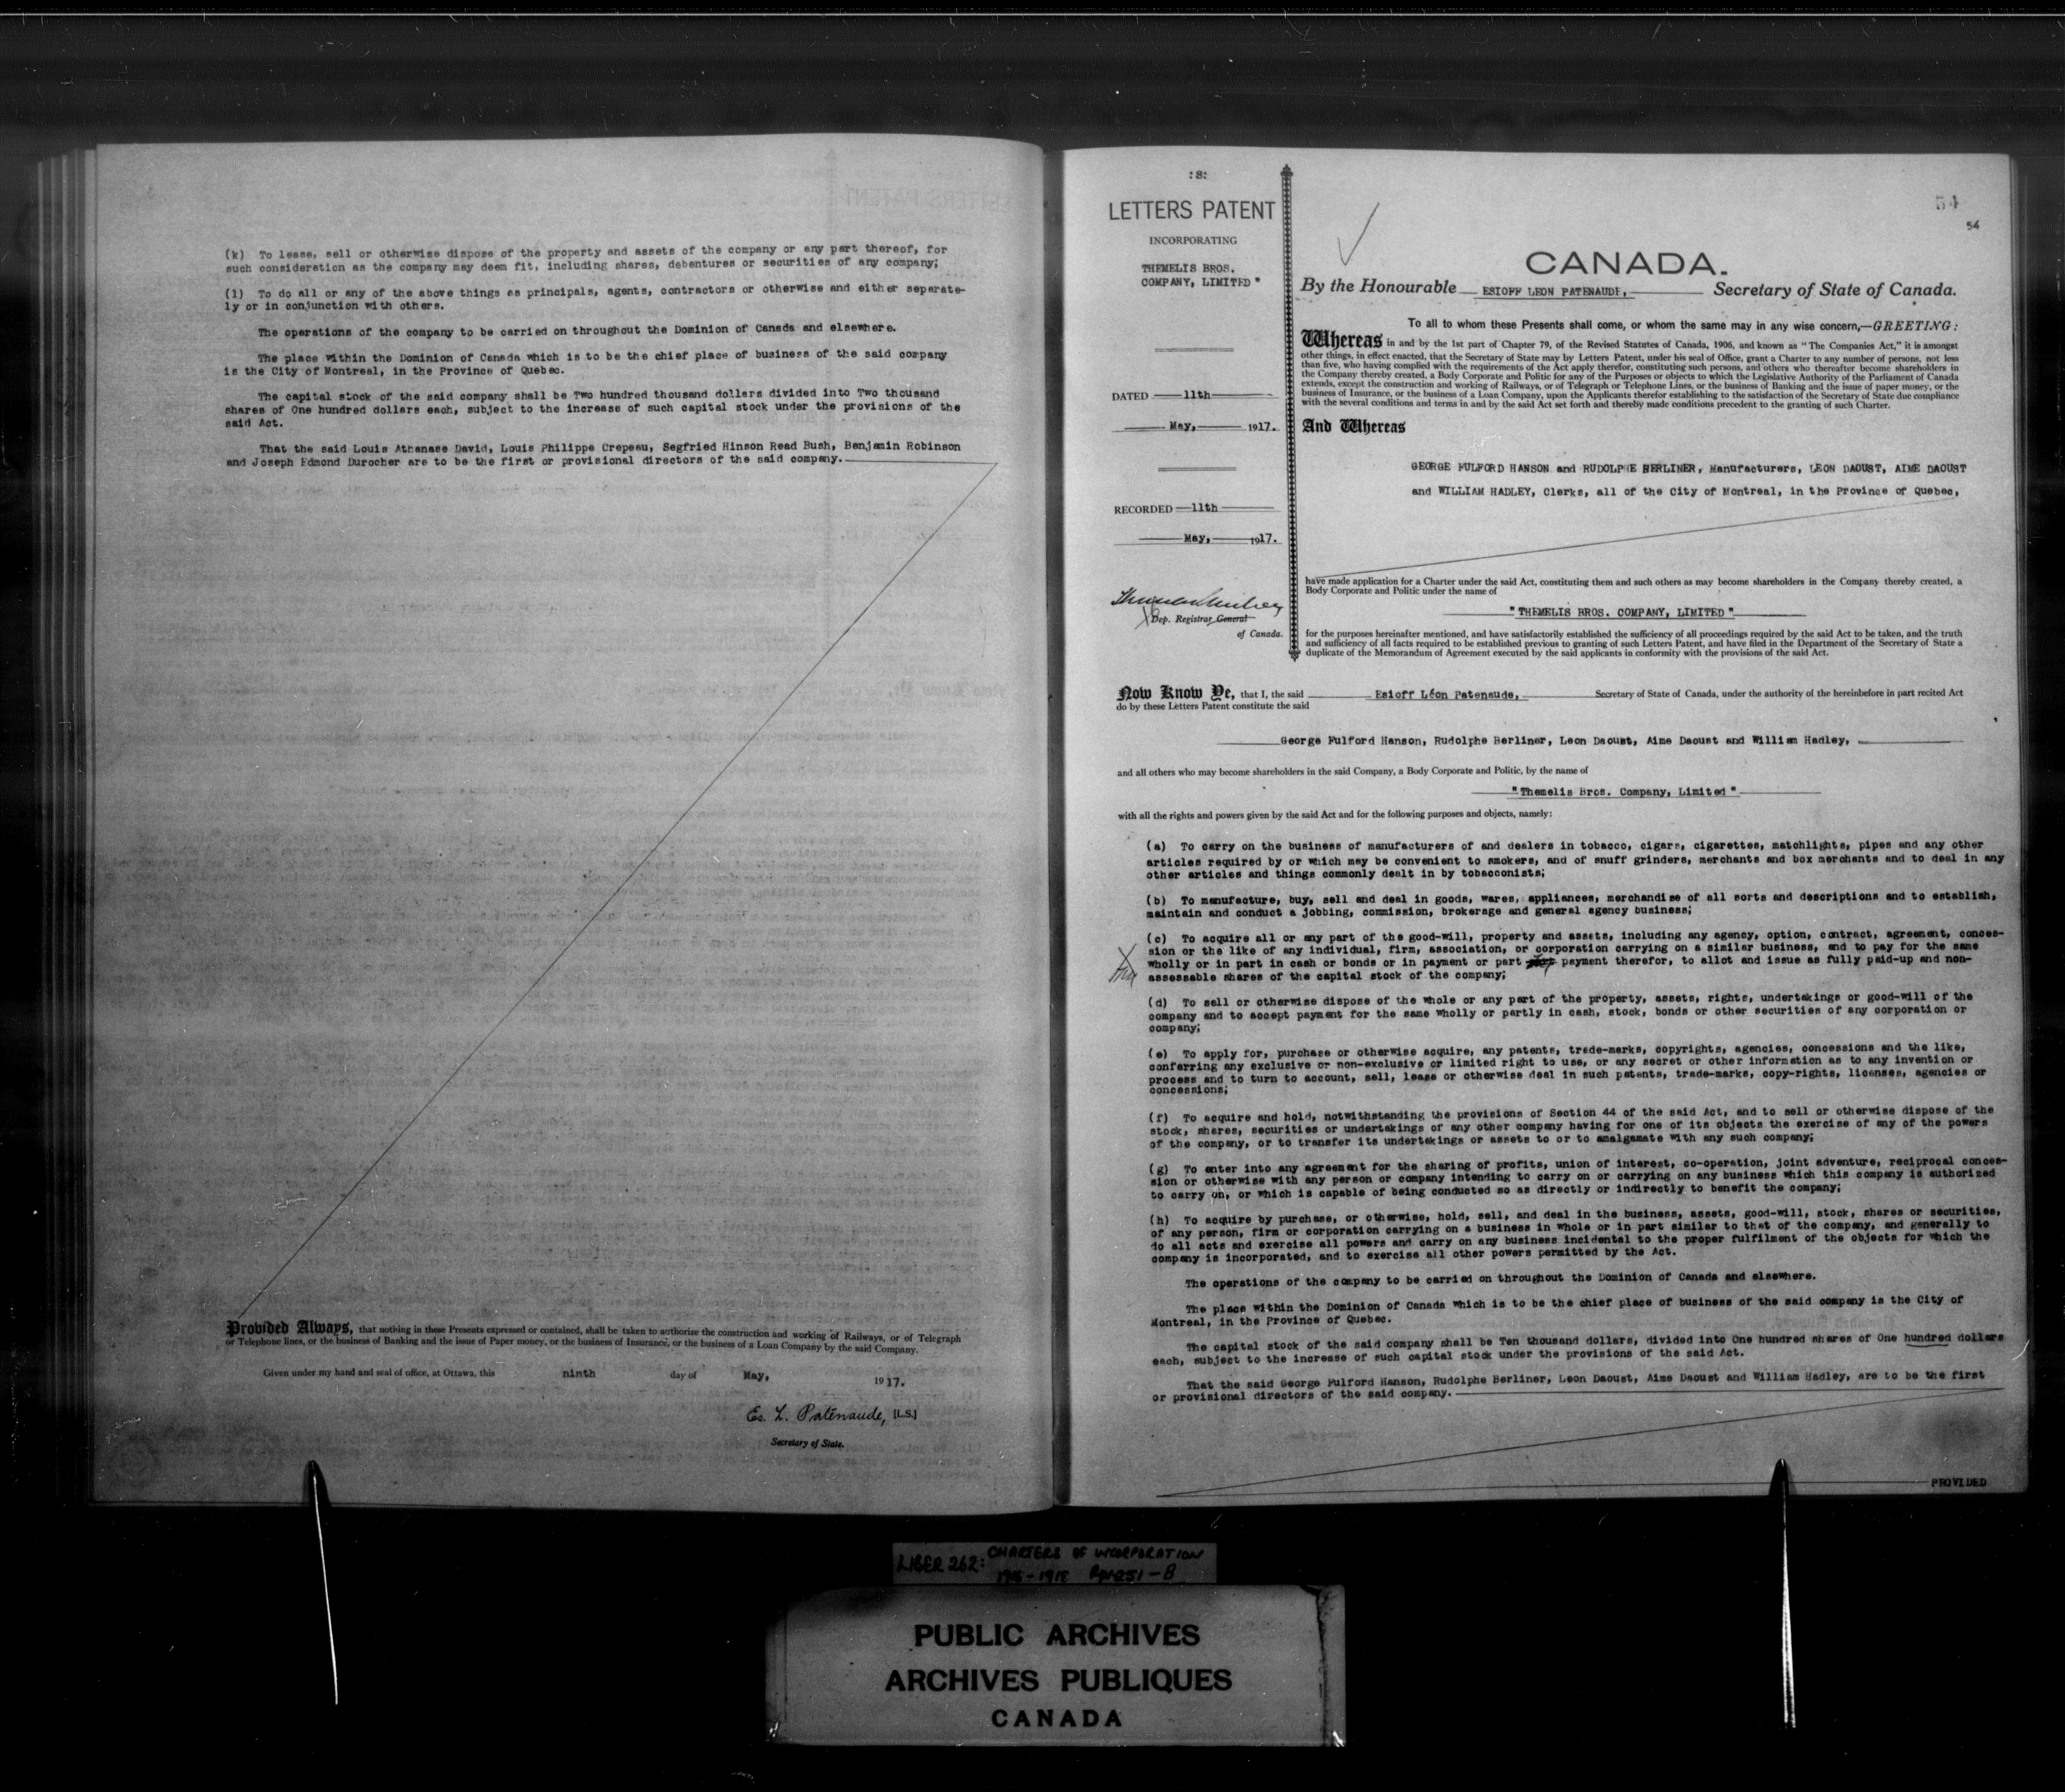 (k) To lease, sell or otherwise dispose of the property and assets of the company or any part thereof, for
such consideration as the company may deem fit, including shares, debentures or securities of any company;
(l) To do all or any of the above things as principals, agents, contractors or otherwise and either separate-
ly or in conjunction with others.
The operations of the company to be carried on throughout the Dominion of Canada and elsewhere.
The place within the Dominion of Canada which is to be the chief place of business of the said company
is the City of Montreal, in the Province of Quebec.
The capital stock of the said company shall be Two hundred thousand dollars divided into Two thousand
shares of One hundred dollars each, subject to the increase of such capital stock under the provisions of the
said Act.
That the said Louis Athanase David, Louis Philippe Crepeau, Segfried Hinson Read Bush, Benjamin Robinson
and Joseph Edmond Durocher are to be the first or provisional directors of the said company.
Provided Always, that nothing in these Presents expressed or contained, shall be taken to authorize the construction and working of Railways, or of Telegraph
or Telephone lines, or the business of Banking and the issue of Paper money, or the business of Insurance, or the business of a Loan Company by the said Company.
Given under my hand and seal of office, at Ottawa, this ninth day of May, 1917.
Es. L. Patenaude, [L.S.]
Secretary of State.
:8:
LETTERS PATENT
INCORPORATING
THEMELIS BROS.
COMPANY, LIMITED"
DATED 11th
May, 1917.
RECORDED 11th
May, 1917.
Dep. Registrar General
of Canada.
54
54
CANADA.
By the Honourable ESIOFF LEON PATENAUDE, Secretary of State of Canada.
To all to whom these Presents shall come, or whom the same may in any wise concern,—GREETING:
Whereas in and by the 1st part of Chapter 79, of the Revised Statutes of Canada, 1906, and known as "The Companies Act," it is amongst
other things, in effect enacted, that the Secretary of State may by Letters Patent, under his seal of Office, grant a Charter to any number of persons, not less
than five, who having complied with the requirements of the Act apply therefor, constituting such persons, and others who thereafter become shareholders in
the Company thereby created, a Body Corporate and Politic for any of the Purposes or objects to which the Legislative Authority of the Parliament of Canada
extends, except the construction and working of Railways, or of Telegraph or Telephone Lines, or the business of Banking and the issue of paper money, or the
business of Insurance, or the business of a Loan Company, upon the Applicants therefor establishing to the satisfaction of the Secretary of State due compliance
with the several conditions and terms in and by the said Act set forth and thereby made conditions precedent to the granting of such Charter.
And Whereas
GEORGE FULFORD HANSON and RUDOLPHE BERLINER, Manufacturers, LEON DAOUST, AIME DAOUST
and WILLIAM HADLEY, Clerks, all of the City of Montreal, in the Province of Quebec,
have made application for a Charter under the said Act, constituting them and such others as may become shareholders in the Company thereby created, a
Body Corporate and Politic under the name of
"THEMELIS BROS. COMPANY, LIMITED"
for the purposes hereinafter mentioned, and have satisfactorily established the sufficiency of all proceedings required by the said Act to be taken, and the truth
and sufficiency of all facts required to be established previous to granting of such Letters Patent, and have filed in the Department of the Secretary of State a
duplicate of the Memorandum of Agreement executed by the said applicants in conformity with the provisions of the said Act.
Now Know Ye, that I, the said Esioff Léon Patenaude, Secretary of State of Canada, under the authority of the hereinbefore in part recited Act
do by these Letters Patent constitute the said
George Fulford Hanson, Rudolphe Berliner, Leon Daoust, Aime Daoust and William Hadley,
and all others who may become shareholders in the said Company, a Body Corporate and Politic, by the name of
"Themelis Bros. Company, Limited"
with all the rights and powers given by the said Act and for the following purposes and objects, namely:
(a) To carry on the business of manufacturers of and dealers in tobacco, cigars, cigarettes, matchlights, pipes and any other
articles required by or which may be convenient to smokers, and of snuff grinders, merchants and box merchants and to deal in any
other articles and things commonly dealt in by tobacconists;
(b) To manufacture, buy, sell and deal in goods, wares, appliances, merchandise of all sorts and descriptions and to establish,
maintain and conduct a jobbing, commission, brokerage and general agency business;
(c) To acquire all or any part of the good-will, property and assets, including any agency, option, contract, agreement, conces-
sion or the like of any individual, firm, association, or corporation carrying on a similar business, and to pay for the same
wholly or in part in cash or bonds or in payment or part payment therefor, to allot and issue as fully paid-up and non-
assessable shares of the capital stock of the company;
(d) To sell or otherwise dispose of the whole or any part of the property, assets, rights, undertakings or good-will of the
company and to accept payment for the same wholly or partly in cash, stock, bonds or other securities of any corporation or
company;
(e) To apply for, purchase or otherwise acquire, any patents, trade-marks, copyrights, agencies, concessions and the like,
conferring any exclusive or non-exclusive or limited right to use, or any secret or other information as to any invention or
process and to turn to account, sell, lease or otherwise deal in such patents, trade-marks, copy-rights, licenses, agencies or
concessions;
(f) To acquire and hold, notwithstanding the provisions of Section 44 of the said Act, and to sell or otherwise dispose of the
stock, shares, securities or undertakings of any other company having for one of its objects the exercise of any of the powers
of the company, or to transfer its undertakings or assets to or to amalgamate with any such company;
(g) To enter into any agreement for the sharing of profits, union of interest, co-operation, joint adventure, reciprocal conces-
sion or otherwise with any person or company intending to carry on or carrying on any business which this company is authorized
to carry on, or which is capable of being conducted so as directly or indirectly to benefit the company;
(h) To acquire by purchase, or otherwise, hold, sell, and deal in the business, assets, good-will, stock, shares or securities,
of any person, firm or corporation carrying on a business in whole or in part similar to that of the company, and generally to
do all acts and exercise all powers and carry on any business incidental to the proper fulfilment of the objects for which the
company is incorporated, and to exercise all other powers permitted by the Act.
The operations of the company to be carried on throughout the Dominion of Canada and elsewhere.
The place within the Dominion of Canada which is to be the chief place of business of the said company is the City of
Montreal, in the Province of Quebec.
The capital stock of the said company shall be Ten thousand dollars, divided into One hundred shares of One hundred dollars
each, subject to the increase of such capital stock under the provisions of the said Act.
That the said George Fulford Hanson, Rudolphe Berliner, Leon Daoust, Aime Daoust and William Hadley, are to be the first
or provisional directors of the said company.
PROVIDED
LIBER 262: CHARTERS OF INCORPORATION
- 1918 - B
PUBLIC ARCHIVES
ARCHIVES PUBLIQUES
CANADA